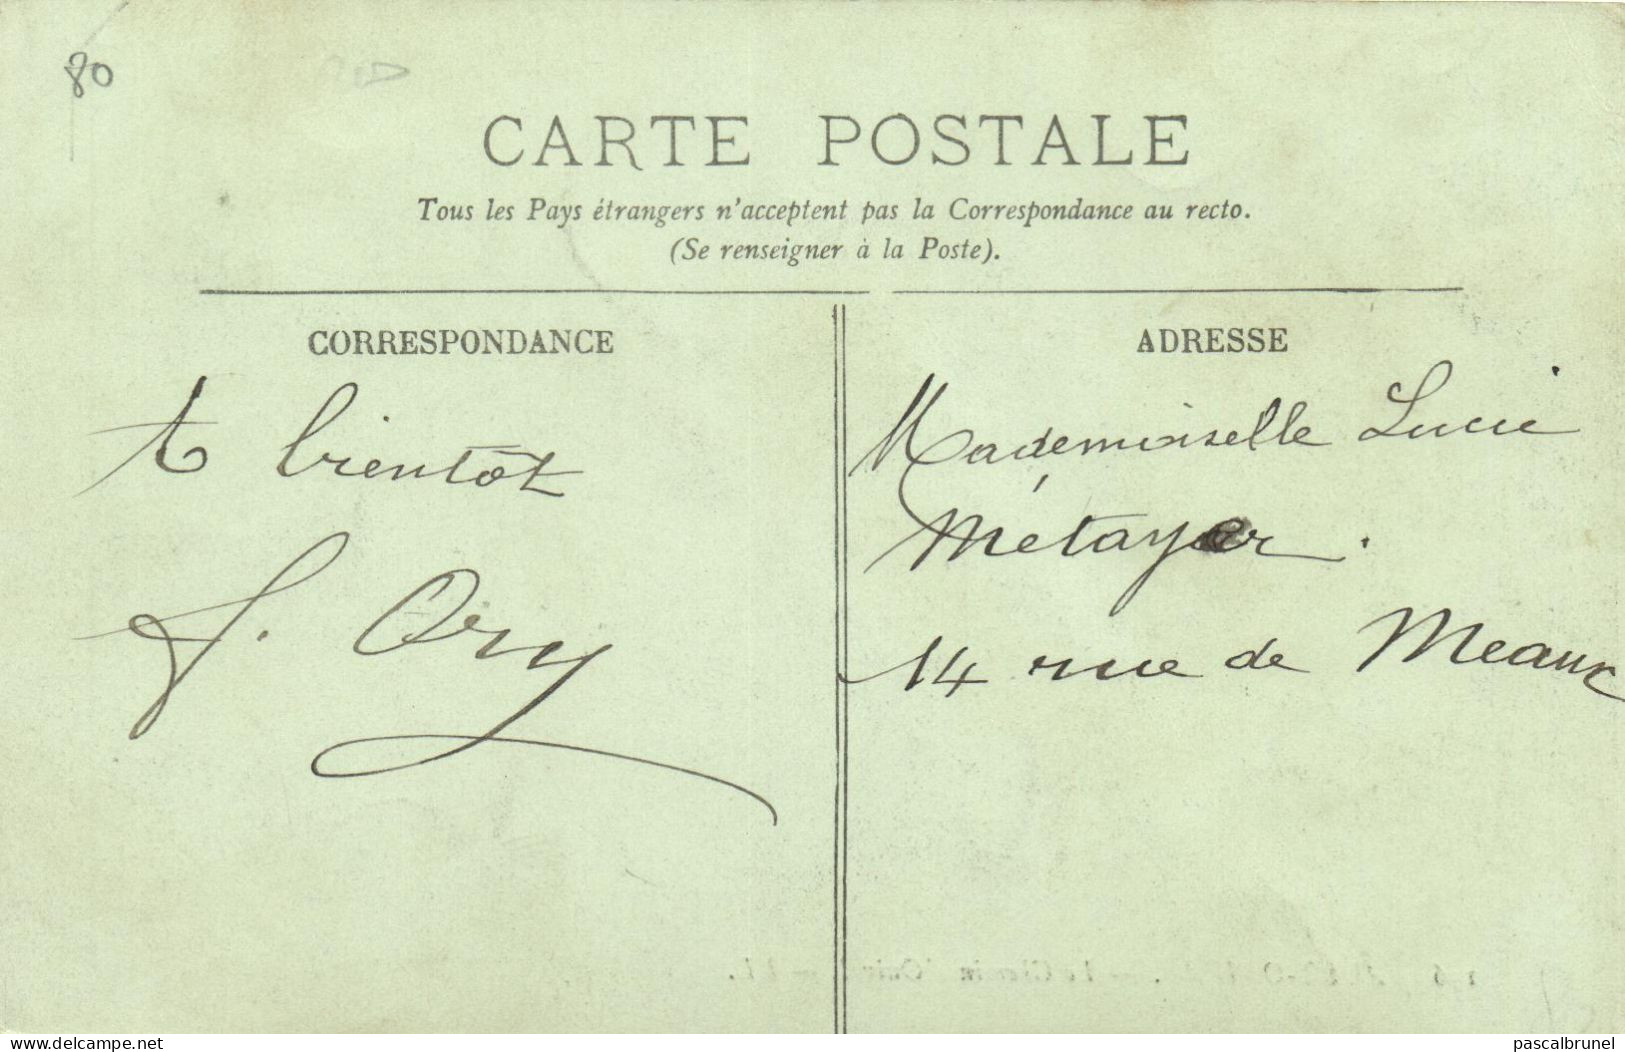 80
CARTE POSTALE
Tous les Pays étrangers n'acceptent pas la Correspondance au recto.
(Se renseigner à la Poste).
CORRESPONDANCE
A bientôt
Ory
ADRESSE
Mademoiselle Lucie
Métayer.
14 rue de Meaux
delcampe.net
pascalbrunel